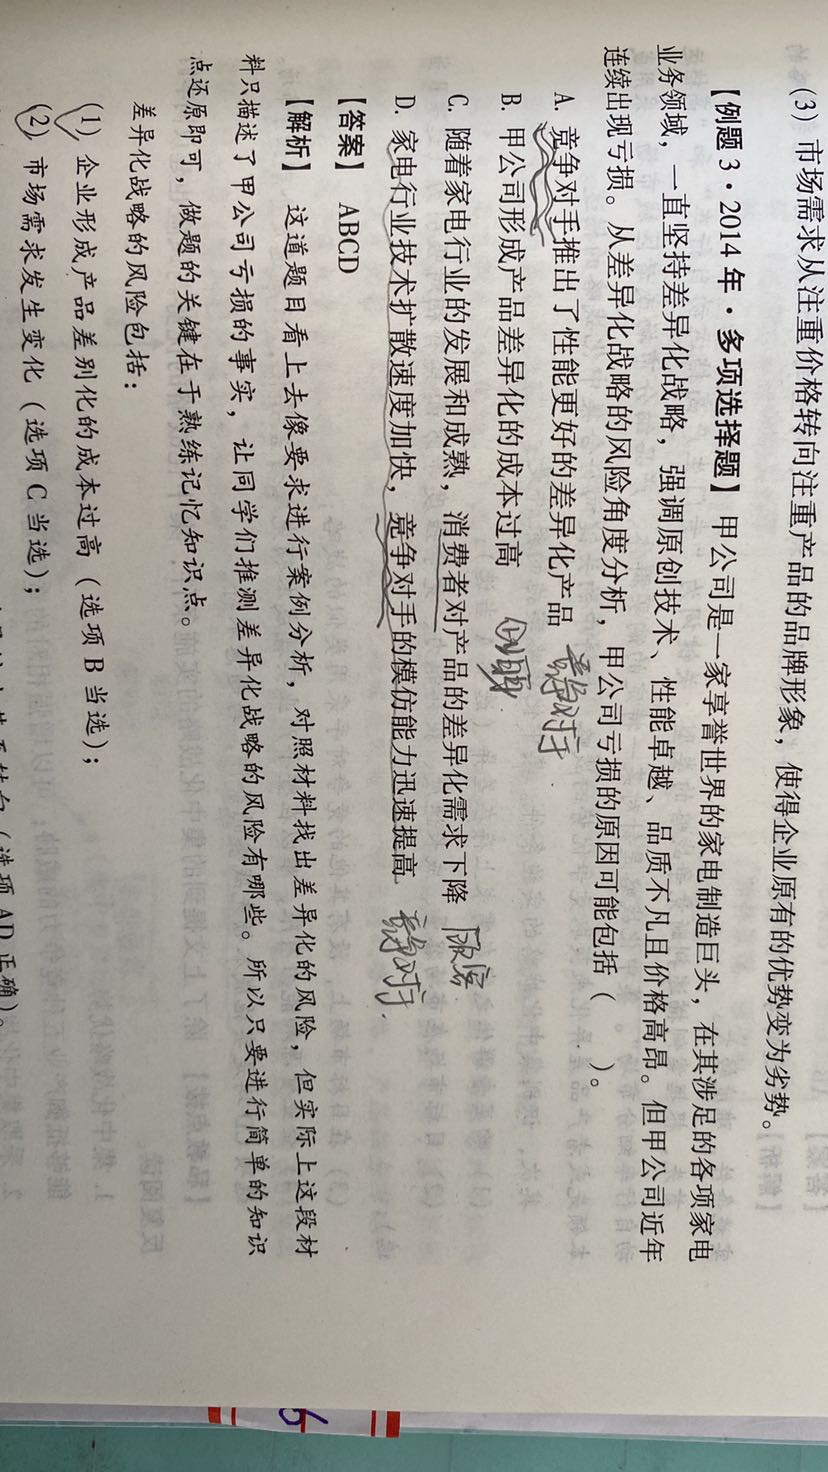 (3) 市场需求从注重价格转向注重产品的品牌形象，使得企业原有的优势变为劣势。
【例题 3·2014 年·多项选择题】甲公司是一家享誉世界的家电制造巨头，在其涉足的各项家电
业务领域，一直坚持差异化战略，强调原创技术、性能卓越、品质不凡且价格高昂。但甲公司近年
连续出现亏损。从差异化战略的风险角度分析，甲公司亏损的原因可能包括（ ）。
A. 竞争对手推出了性能更好的差异化产品 竞争对手
B. 甲公司形成产品差异化的成本过高
C. 随着家电行业的发展和成熟，消费者对产品的差异化需求下降 顾客
D. 家电行业技术扩散速度加快，竞争对手的模仿能力迅速提高 竞争对手
【答案】 ABCD
【解析】 这道题目看上去像要求进行案例分析，对照材料找出差异化的风险，但实际上这段材
料只描述了甲公司亏损的事实，让同学们推测差异化战略的风险有哪些。所以只要进行简单的知识
点还原即可，做题的关键在于熟练记忆知识点。
差异化战略的风险包括：
(1) 企业形成产品差别化的成本过高（选项 B 当选）；
(2) 市场需求发生变化（选项 C 当选）；
（选项 AD 正确）。
6